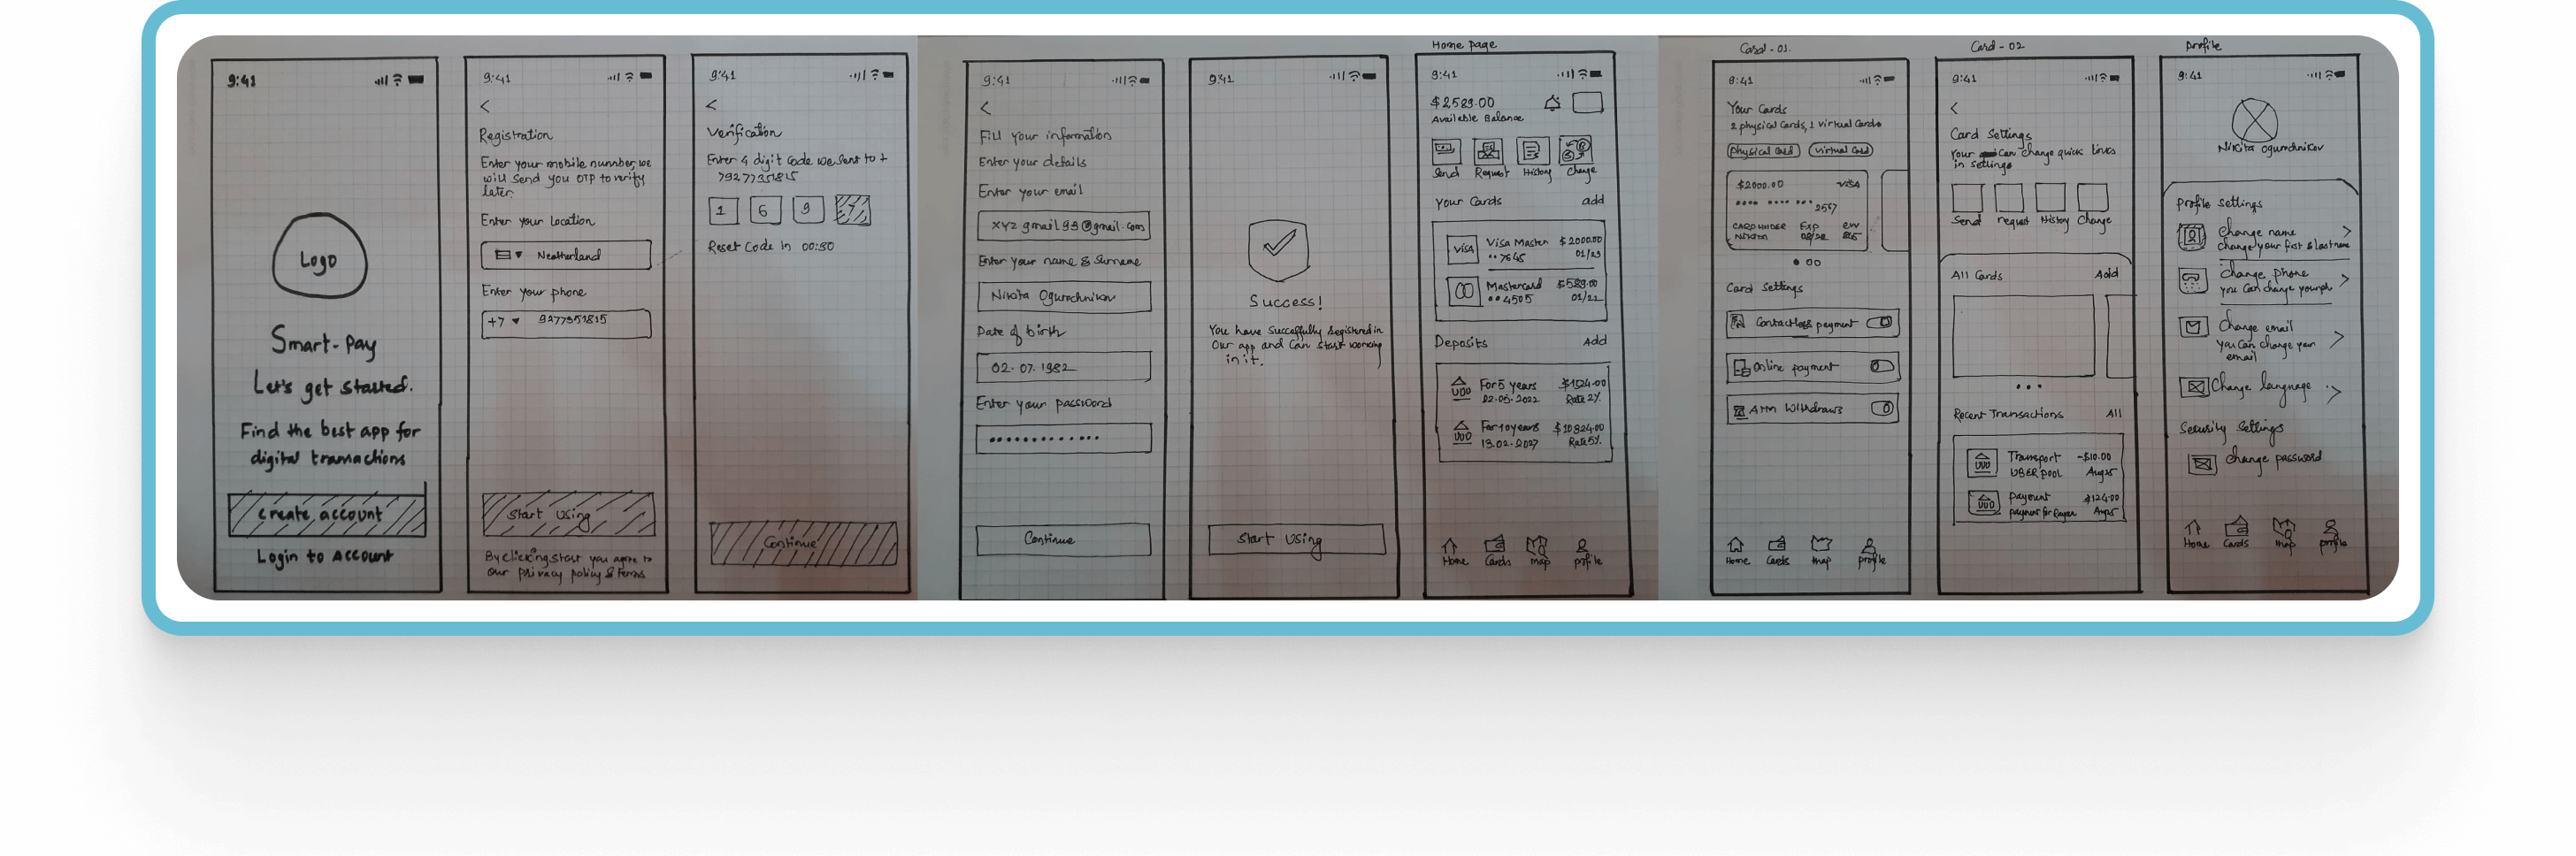 9:41
Logo
Smart-pay
Let's get started.
Find the best app for
digital transactions
create account
Login to Account
9:41
<
Registration
Enter your mobile number, we
will send you OTP to verify
later.
Enter your location
Neatherland
Enter your phone
+7 9277351815
Start Using
By clicking start you agree to
our privacy policy & Terms
9:41
<
Verification
Enter 4 digit code we sent to +
79277351815
1 6 9 7
Reset Code in 00:30
Continue
9:41
<
Fill your information
Enter your details
Enter your email
xyz gmail99@gmail.com
Enter your name & Surname
Nikita Ogurchnikov
Date of birth
02.07.1982
Enter your password
Continue
9:41
Success!
You have succeffully registered in
Our app and can start working
in it.
Start Using
Home page
9:41
$2589.00
Available Balance
Send Request History Change
Your Cards add
VISA Visa Master $2000.00
••7645 01/23
Mastercard $589.00
••4505 01/22
Deposits Add
For 5 years $1024.00
02.05.2022 Rate 2%
For 10 years $10824.00
13.02.2027 Rate 5%
Home Cards map profile
Card - 01.
9:41
Your Cards
2 physical Cards, 1 virtual Cards
physical card virtual card
$2000.00 VISA
•••• •••• ••• 2567
CARD HOLDER Exp
NIKITA
Card Settings
Contactless payment
Online payment
ATM Withdraws
Home Cards map profile
Card - 02
9:41
<
Card Settings
Your Can change quick links
in settings
Send request History Change
All Cards Add
Recent Transactions All
Transport -$10.00
UBER pool Aug 25
Payment $124.00
payment for Aug 25
Profile
9:41
Nikita Ogurchnikov
Profile Settings
Change name >
change your first & last name
Change phone >
you can change your ph
Change email >
you can change your
email
Change language >
Security Settings
Change password
Home Cards map profile